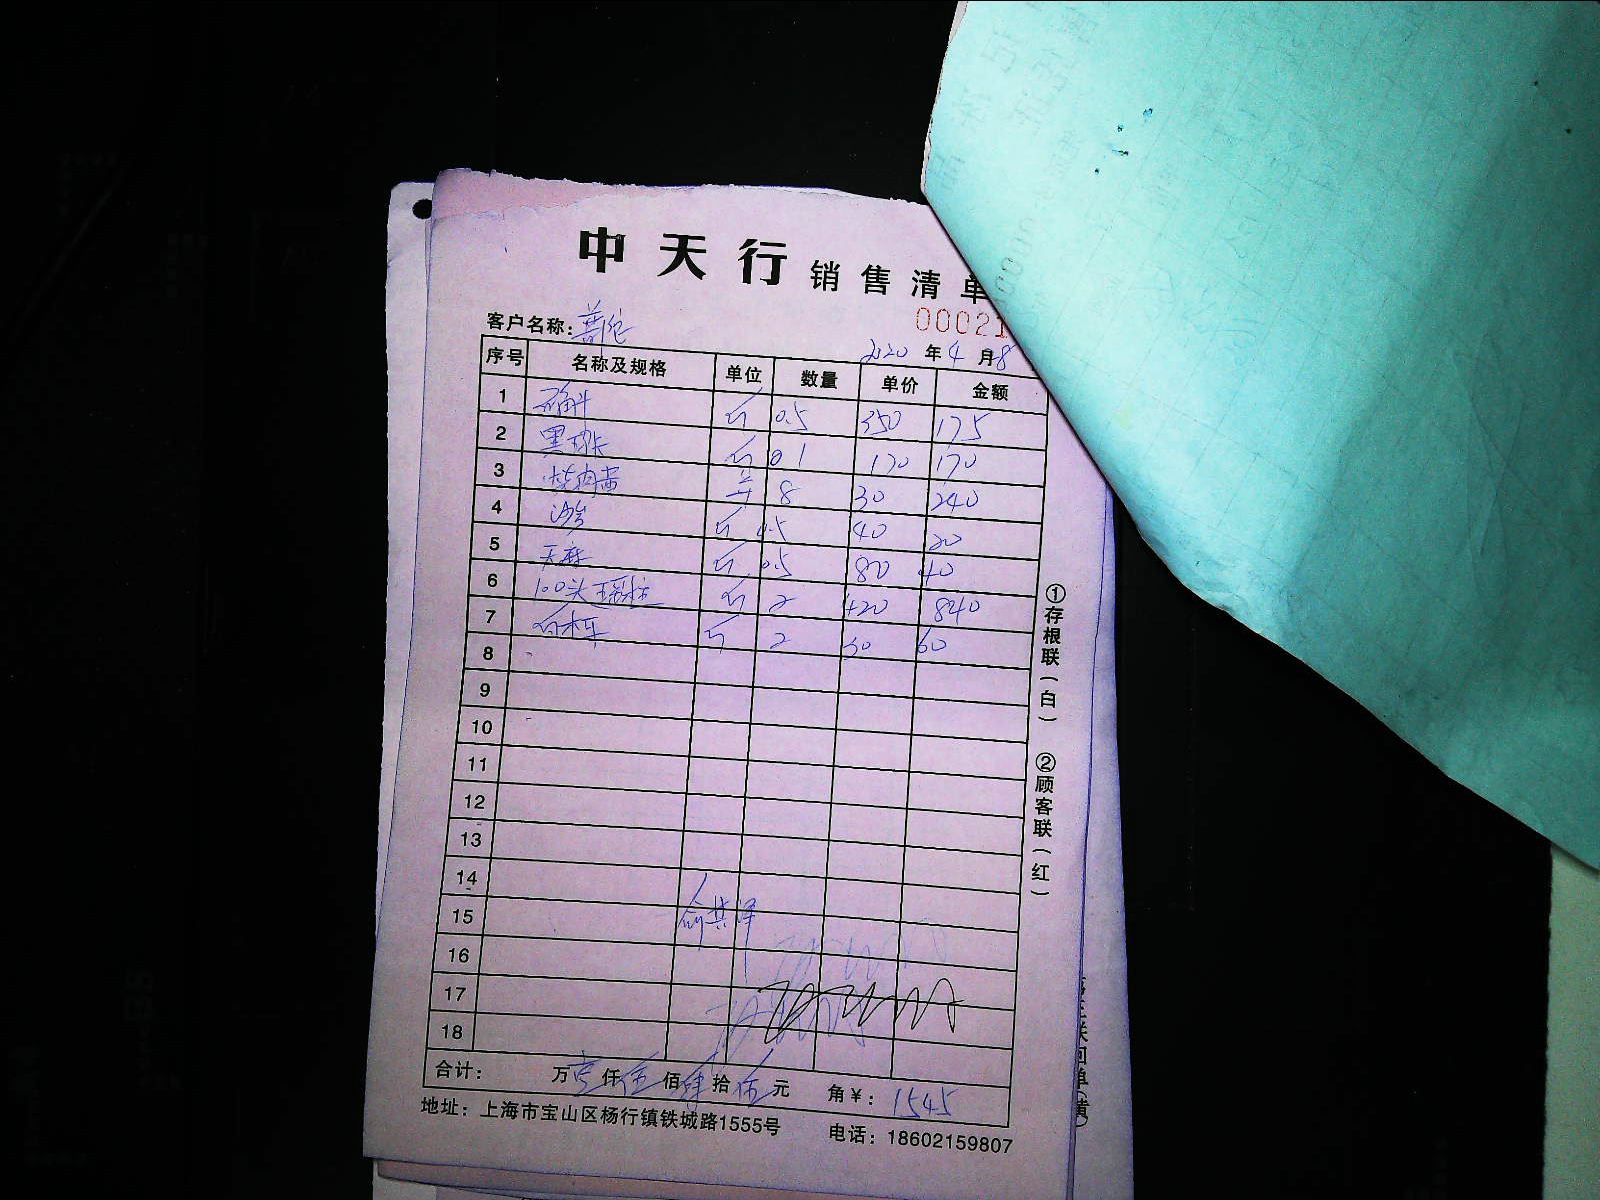 中天行 销售清单
00021
客户名称：普陀
2020 年 4 月 8
序号 名称及规格 单位 数量 单价 金额
1 斤 0.5 350 175
2 斤 1 170 170
3 8 30 240
4 斤 0.5 40 20
5 天麻 斤 0.5 80 40
6 100头瑶柱 斤 2 420 840
7 斤 2 30 60
8
9
10
11
12
13
14
15
16
17
18
合计： 万壹仟伍佰肆拾伍元 角￥：1545
地址：上海市宝山区杨行镇铁城路1555号 电话：18602159807
①存根联（白） ②顾客联（红）